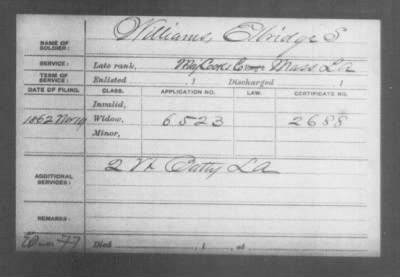 NAME OF SOLDIER: Williams, Elbridge S
SERVICE: Late rank, Maj Cooks Co Mass L.A
TERM OF SERVICE: Enlisted , 1 Discharged , 1
DATE OF FILING. CLASS. APPLICATION NO. LAW. CERTIFICATE NO.
Invalid,
1862 Nov Widow, 6523 2688
Minor,
ADDITIONAL SERVICES: 2 Batty L A
REMARKS:
Died , 1 , at